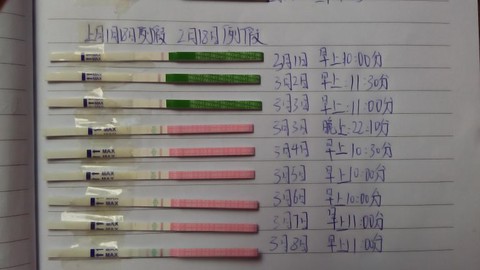 上月1月18号到1号假 2月18日到1号
3月1日 早上10:00分
3月2日 早上:11:30分
3月3日 早上:11:00分
3月3日 晚上:22:10分
3月4日 早上10:30分
3月5日 早上10:00分
3月6日 早上10:00分
3月7日 早上11:00分
3月8日 早上11:00分
MAX
MAX
MAX
MAX
MAX
MAX